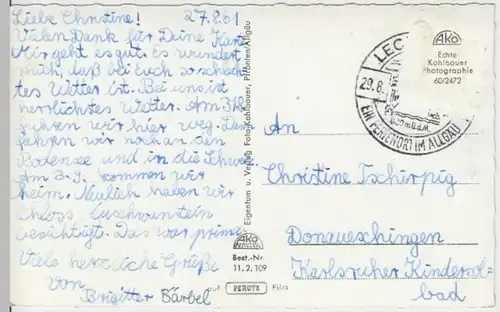 Liebe Christine! 27.8.61
Vielen Dank für Deine Karte
Mir geht es gut. Es wundert
mich, daß bei Euch so schlech-
tes Wetter ist. Bei uns ist
herrlichstes Wetter. Am 31.8.
fahren wir hier weg. Dan
fahren wir noch an den
Bodensee und in die Schweiz
Am 3.9. kommen wir
heim. Neulich haben wir
Schloss
besichtigt. Das war prima.
Viele herzliche Grüße
von
Brigitte Bärbel
Eigentum u. Verlag Foto-Kohlbauer, Pfronten/Allgäu
AKO
Best.-Nr.
11.2.109
auf PERUTZ Film
LEC
29.8.
EIN FERIENORT IM ALLGÄU
AKO
Echte
Kohlbauer
Photographie
60/2472
An
Christine Tschirpig
Donaueschingen
Karlsruher Kindersol-
bad